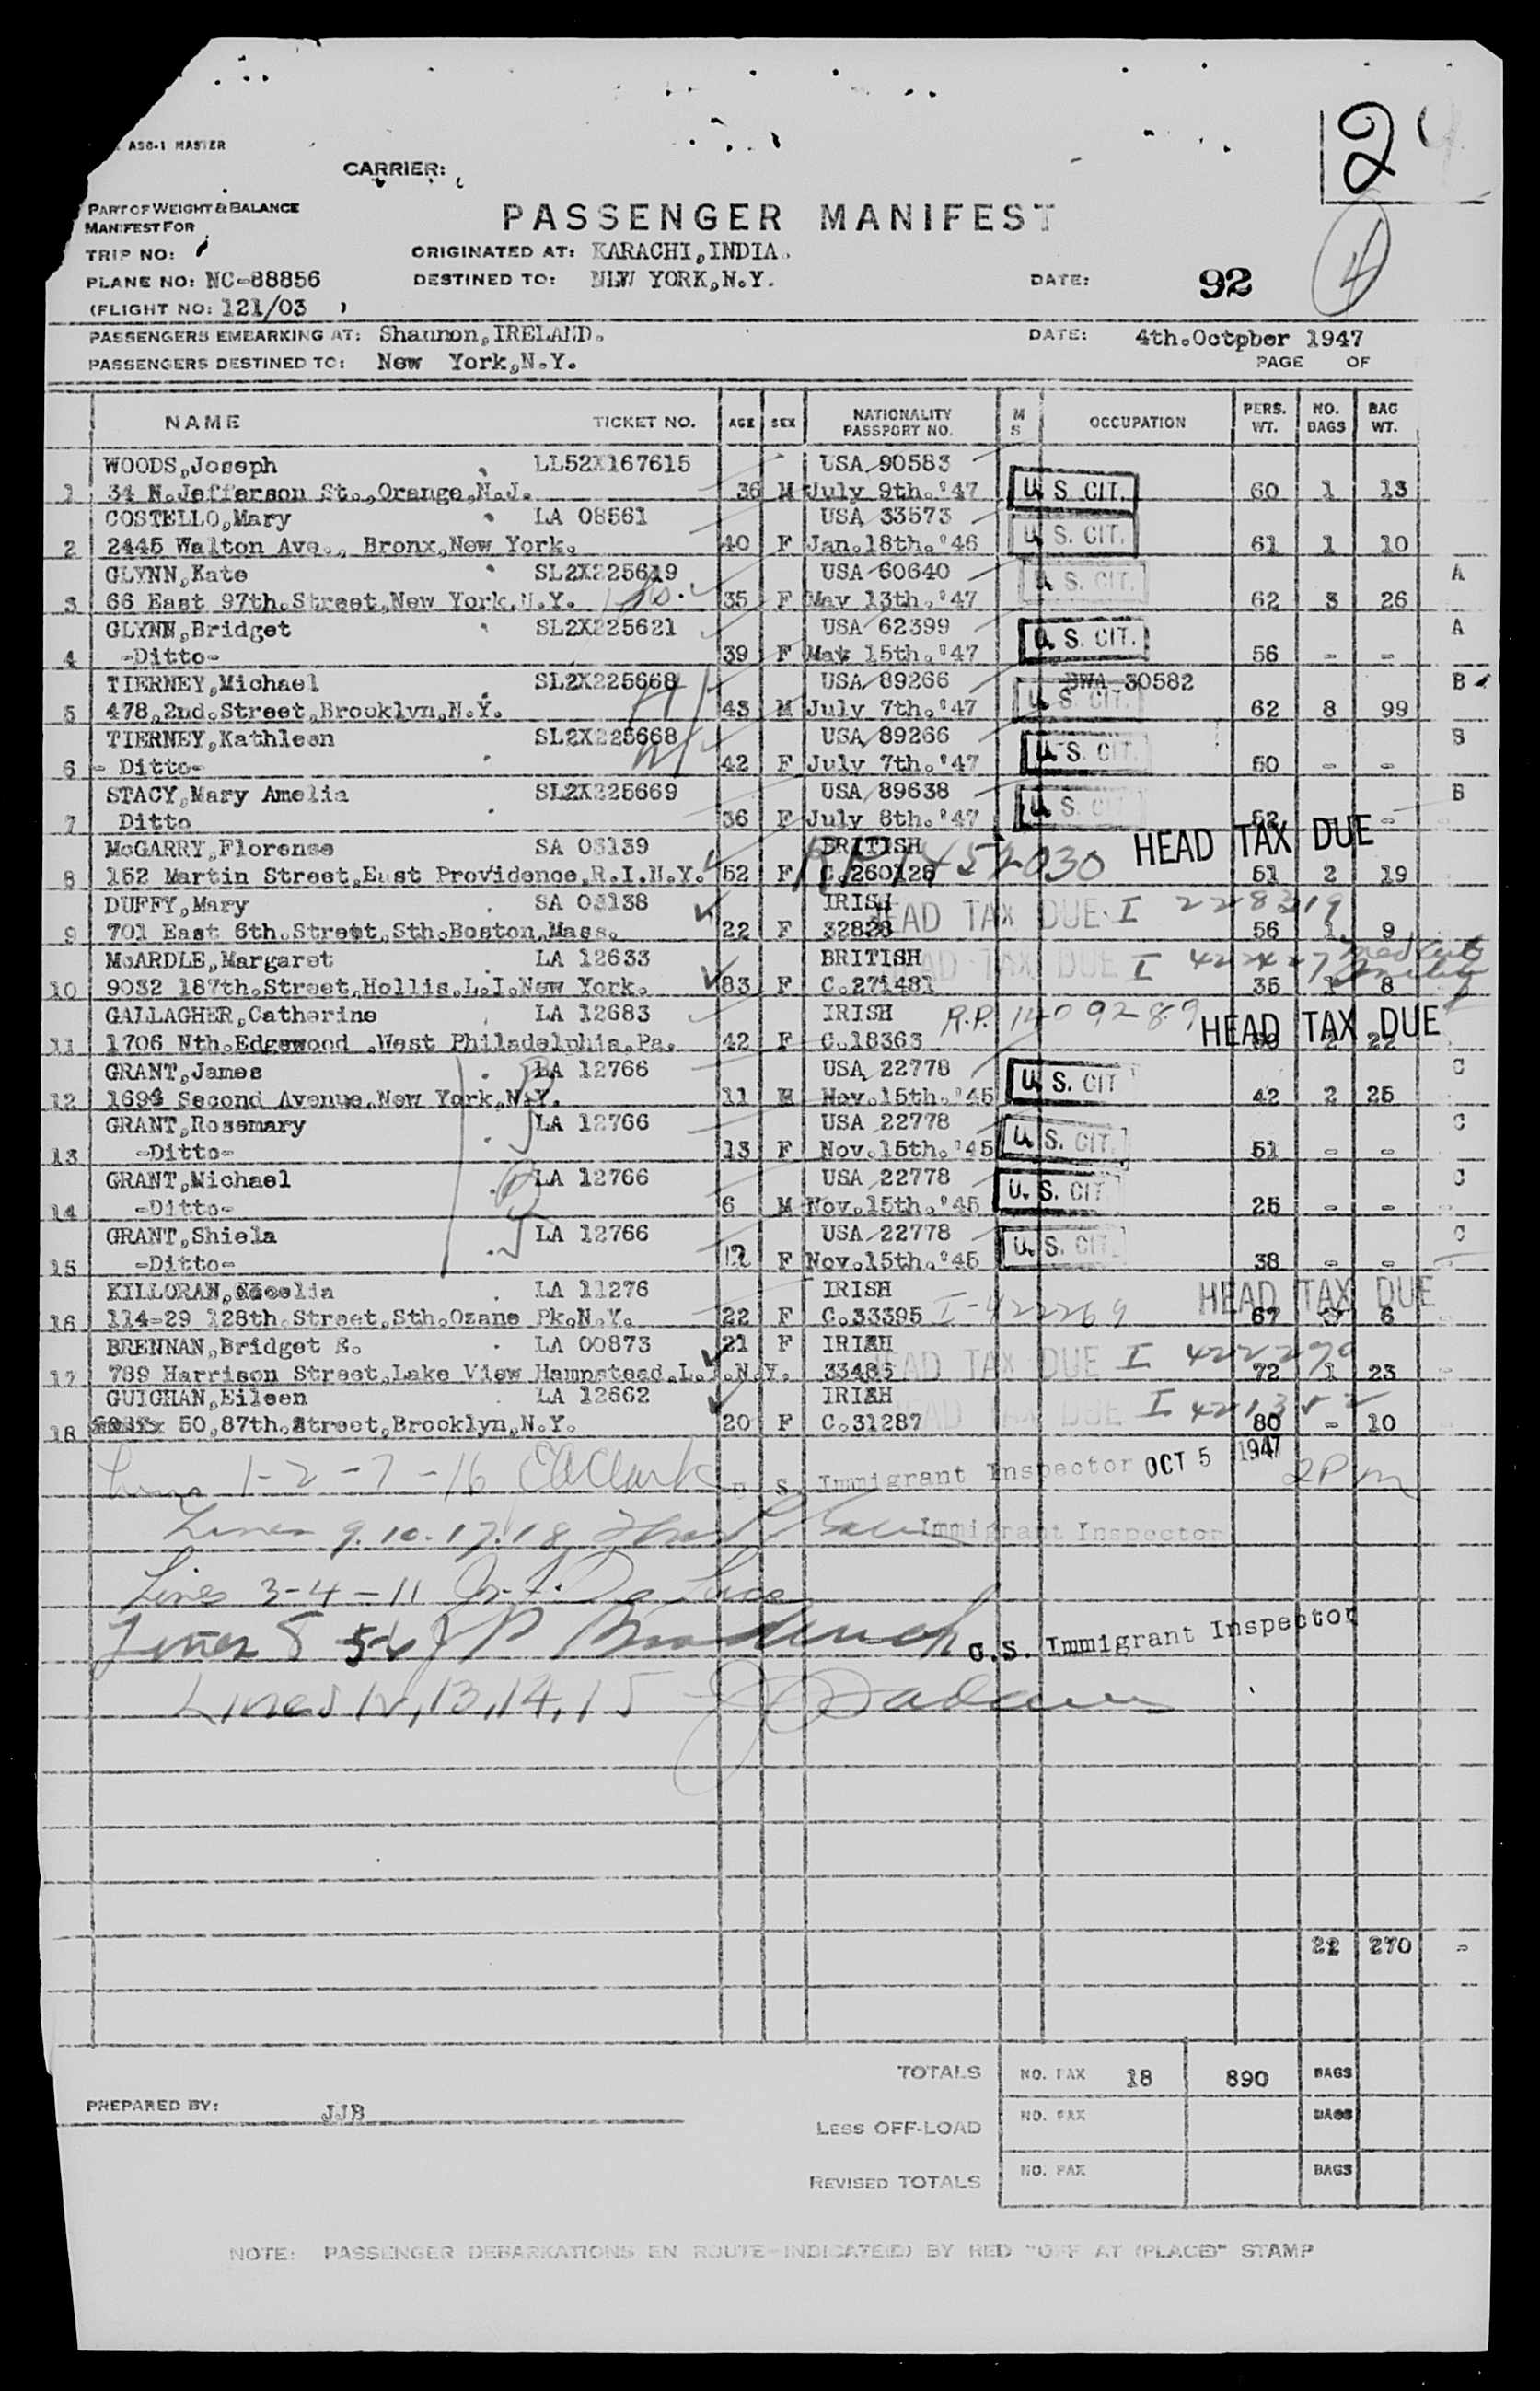 ASG-1 MASTER
CARRIER:
24
PART OF WEIGHT & BALANCE
MANIFEST FOR
PASSENGER MANIFEST
4
TRIP NO:
ORIGINATED AT: KARACHI,INDIA.
PLANE NO: NC-88856
DESTINED TO: NEW YORK,N.Y.
DATE: 92
(FLIGHT NO: 121/03 )
PASSENGERS EMBARKING AT: Shannon,IRELAND. DATE: 4th.October 1947
PASSENGERS DESTINED TO: New York,N.Y. PAGE OF
NAME TICKET NO. AGE SEX NATIONALITY PASSPORT NO. M S OCCUPATION PERS. WT. NO. BAGS BAG WT.
WOODS,Joseph LL52X167615 USA 90583
1 34 N.Jefferson St.,Orange,N.J. 36 M July 9th.'47 U. S. CIT. 60 1 13
COSTELLO,Mary LA 08561 USA 33573
2 2445 Walton Ave., Bronx,New York. 40 F Jan.18th.'46 U. S. CIT. 61 1 10
GLYNN,Kate SL2X225619 USA 60640 A
3 66 East 97th.Street,New York.N.Y. 35 F May 13th.'47 U. S. CIT. 62 3 26
GLYNN,Bridget SL2X225621 USA 62399 A
4 -Ditto- 39 F May 15th.'47 U. S. CIT. 56 - -
TIERNEY,Michael SL2X225668 USA 89266 BWA 30582 B
5 478,2nd.Street,Brooklyn,N.Y. 43 M July 7th.'47 U. S. CIT. 62 8 99
TIERNEY,Kathleen SL2X225668 USA 89266 B
6 - Ditto- 42 F July 7th.'47 U. S. CIT. 50 - -
STACY,Mary Amelia SL2X225669 USA 89638 B
7 Ditto 36 F July 8th.'47 U. S. CIT. 52 -
McGARRY,Florense SA 03139 BRITISH RP1452030 HEAD TAX DUE
8 152 Martin Street,East Providence,R.I.N.Y. 52 F C.260125 51 2 19
DUFFY,Mary SA 03138 IRISH HEAD TAX DUE I 228319
9 701 East 6th.Street,Sth.Boston,Mass. 22 F 32828 56 1 9
McARDLE,Margaret LA 12633 BRITISH HEAD TAX DUE I 422427
10 9032 187th.Street,Hollis.L.I.New York. 83 F C.271481 35 1 8
GALLAGHER,Catherine LA 12683 IRISH R.P. 1409289 HEAD TAX DUE
11 1706 Nth.Edgewood .West Philadelphia.Pa. 42 F C.18363 2 22
GRANT,James LA 12766 USA 22778 C
12 1694 Second Avenue,New York,N.Y. 11 M Nov.15th.'45 U. S. CIT 42 2 25
GRANT,Rosemary LA 12766 USA 22778 C
13 -Ditto- 13 F Nov.15th.'45 U. S. CIT. 51 - -
GRANT,Michael LA 12766 USA 22778 C
14 -Ditto- 6 M Nov.15th.'45 U. S. CIT. 25 - -
GRANT,Shiela LA 12766 USA 22778 C
15 -Ditto- 12 F Nov.15th.'45 U. S. CIT. 38 - -
KILLORAN, LA 11276 IRISH HEAD TAX DUE
16 114-29 128th.Street,Sth.Ozane Pk.N.Y. 22 F C.33395 I-422269 67 6
BRENNAN,Bridget S. LA 00873 21 F IRISH HEAD TAX DUE I 422270
17 789 Harrison Street,Lake View Hampstead.L.I.N.Y. 33485 72 1 23
GUIGHAN,Eileen LA 12662 IRISH HEAD TAX DUE I
18 50,87th.Street,Brooklyn,N.Y. 20 F C.31287 80 - 10
Lines 1-2-7-16 Clark U S Immigrant Inspector OCT 5 1947 2 Pm
Lines 9.10.17.18 Immigrant Inspector
Lines 3-4-11
Lines 8 5-6 U.S. Immigrant Inspector
Lines 12,13,14,15
22 270 -
TOTALS NO. PAX 18 890 BAGS
PREPARED BY: JJB
LESS OFF-LOAD NO. PAX BAGS
REVISED TOTALS NO. PAX BAGS
NOTE: PASSENGER DEBARKATIONS EN ROUTE INDICATE(D) BY RED "OFF AT (PLACE)" STAMP